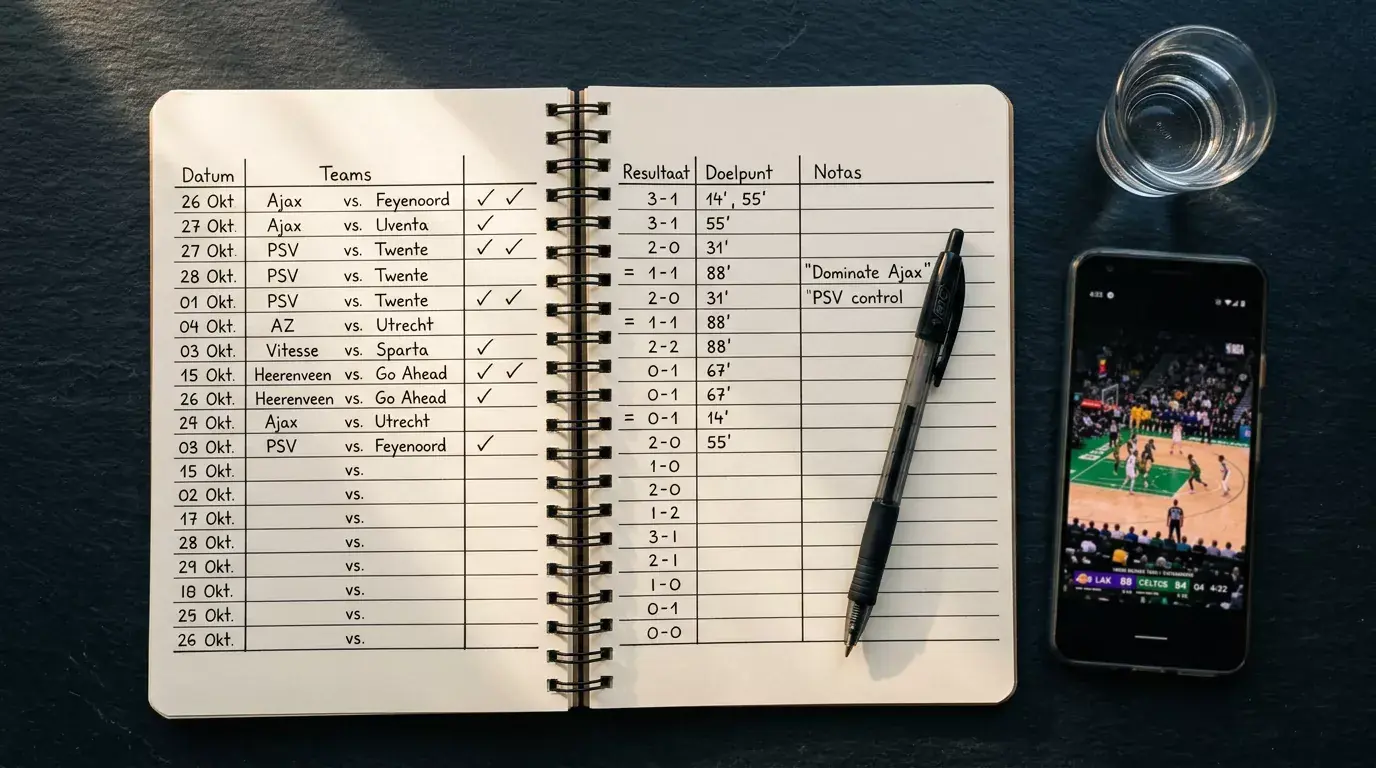 Datum Teams
26 Okt. Ajax vs. Feyenoord ✓ ✓
27 Okt. Ajax vs. Uventa ✓
27 Okt. PSV vs. Twente ✓ ✓
28 Okt. PSV vs. Twente
01 Okt. PSV vs. Twente ✓ ✓
04 Okt. AZ vs. Utrecht
03 Okt. Vitesse vs. Sparta ✓
15 Okt. Heerenveen vs. Go Ahead ✓ ✓
26 Okt. Heerenveen vs. Go Ahead ✓
24 Okt. Ajax vs. Utrecht
03 Okt. PSV vs. Feyenoord ✓
15 Okt. vs.
02 Okt. vs.
17 Okt. vs.
28 Okt. vs.
29 Okt. vs.
18 Okt. vs.
25 Okt. vs.
26 Okt. vs.
Resultaat Doelpunt Notas
3-1 14', 55'
3-1 55'
2-0 31'
= 1-1 88' "Dominate Ajax"
2-0 31' "PSV control
= 1-1 88'
2-2 88'
0-1 67'
0-1 67'
= 0-1 14'
2-0 55'
1-0
2-0
1-2
3-1
2-1
1-0
0-1
0-0
4:23
LAK 88 CELTCS 84 04 4:22